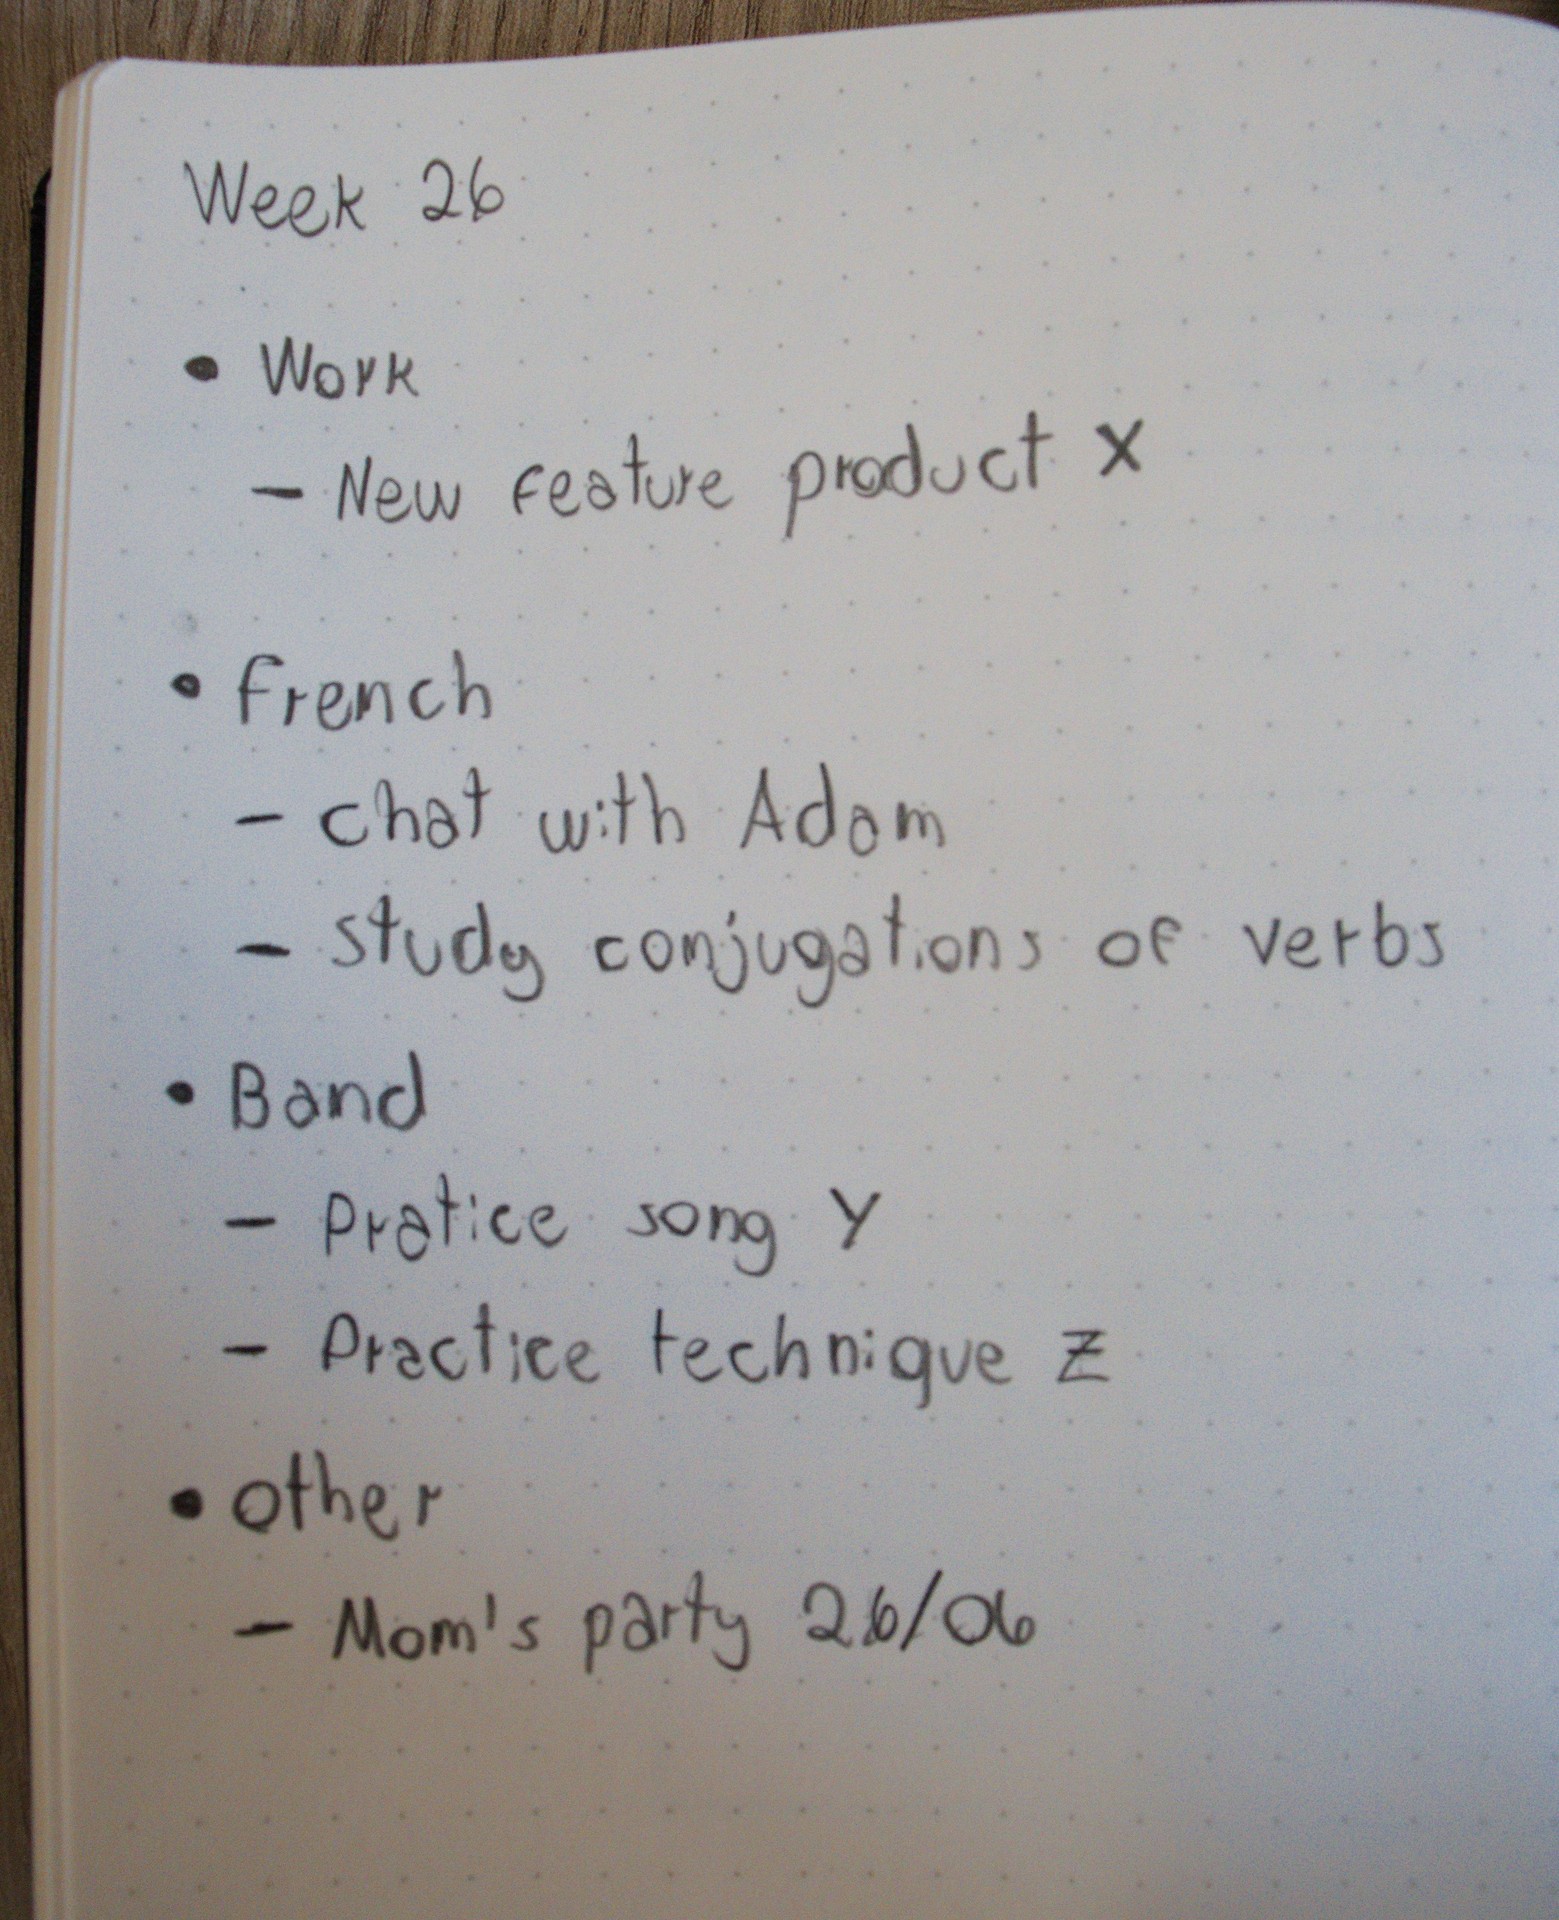 Week 26
• Work
- New feature product X
• French
- chat with Adam
- study conjugations of verbs
• Band
- Pratice song Y
- Practice technique Z
• other
- Mom's party 26/06